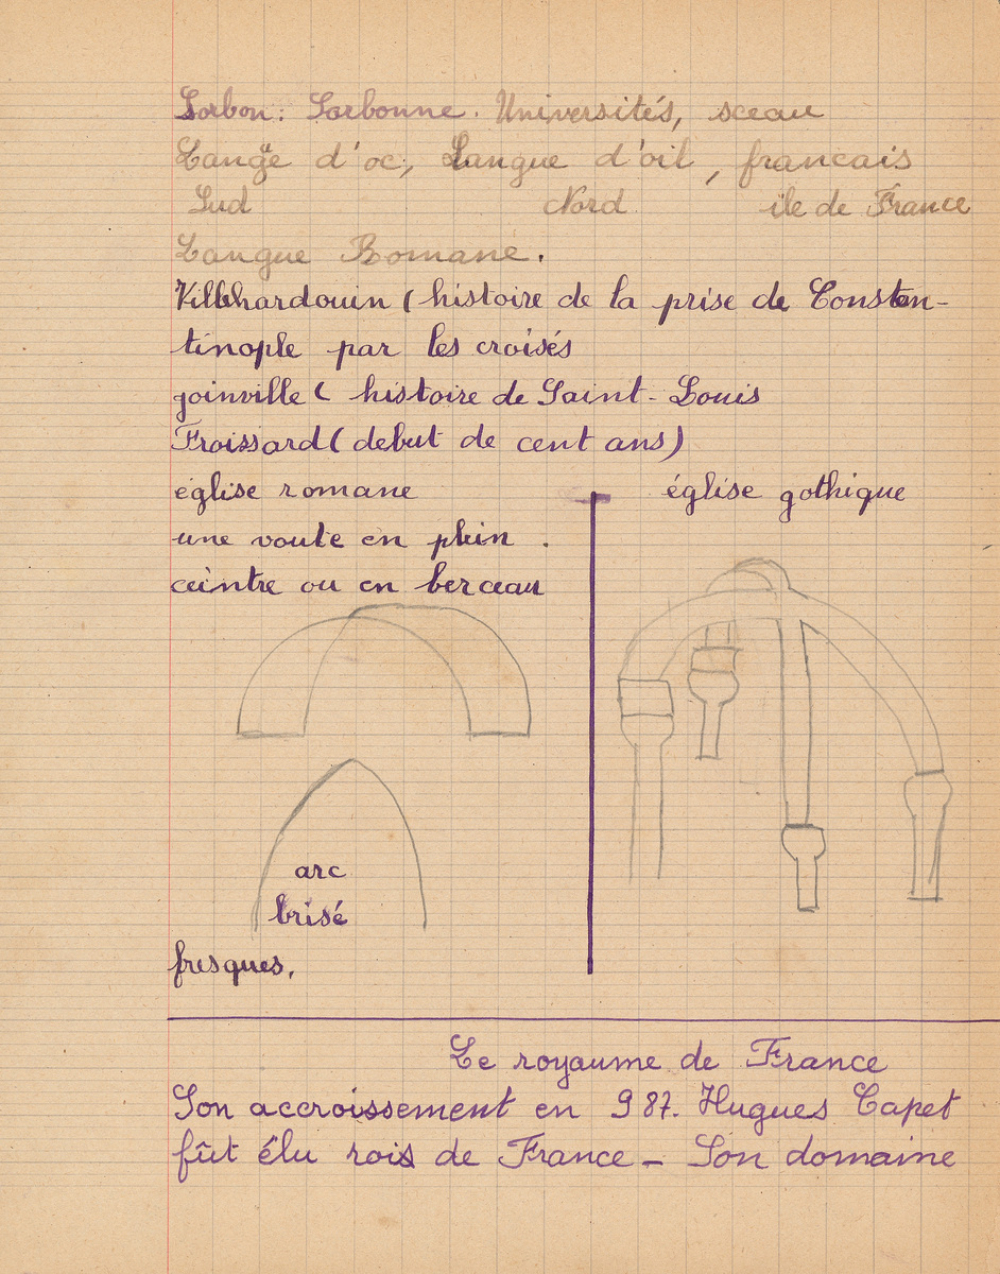 Sorbon: Sorbonne. Universités, sceau
Lange d'oc, Langue d'oil, francais
Sud Nord ile de France
Langue Romane.
Villehardouin (histoire de la prise de Constan-
tinople par les croisés
joinville ( histoire de Saint-Louis
Froissard (debut de cent ans)
église romane
église gothique
une voute en plein .
ceintre ou en berceau
arc
brisé
fresques.
Le royaume de France
Son accroissement en 987. Hugues Capet
fût élu rois de France - Son domaine